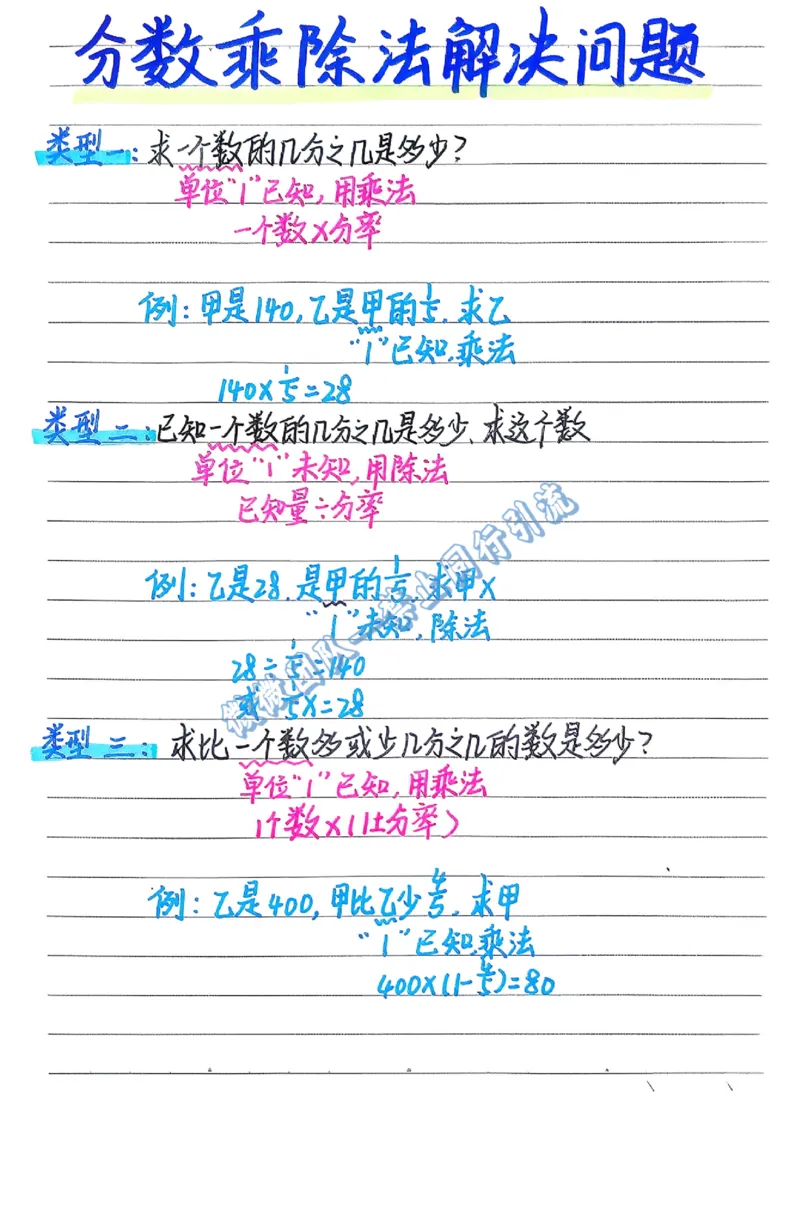 分数乘除法解决问题
类型一:求一个数的几分之几是多少?
单位"1"已知,用乘法
一个数×分率
例:甲是140,乙是甲的1/5.求乙
"1"已知,乘法
140×1/5=28
类型二:已知一个数的几分之几是多少、求这个数
单位"1"未知,用除法
已知量÷分率
例:乙是28.是甲的1/5.求甲x
"1"未知,除法
28÷1/5=140
或 1/5x=28
类型三:求比一个数多或少几分之几的数是多少?
单位"1"已知,用乘法
1个数×(1±分率)
例:乙是400,甲比乙少4/5.求甲
"1"已知,乘法
400×(1-4/5)=80